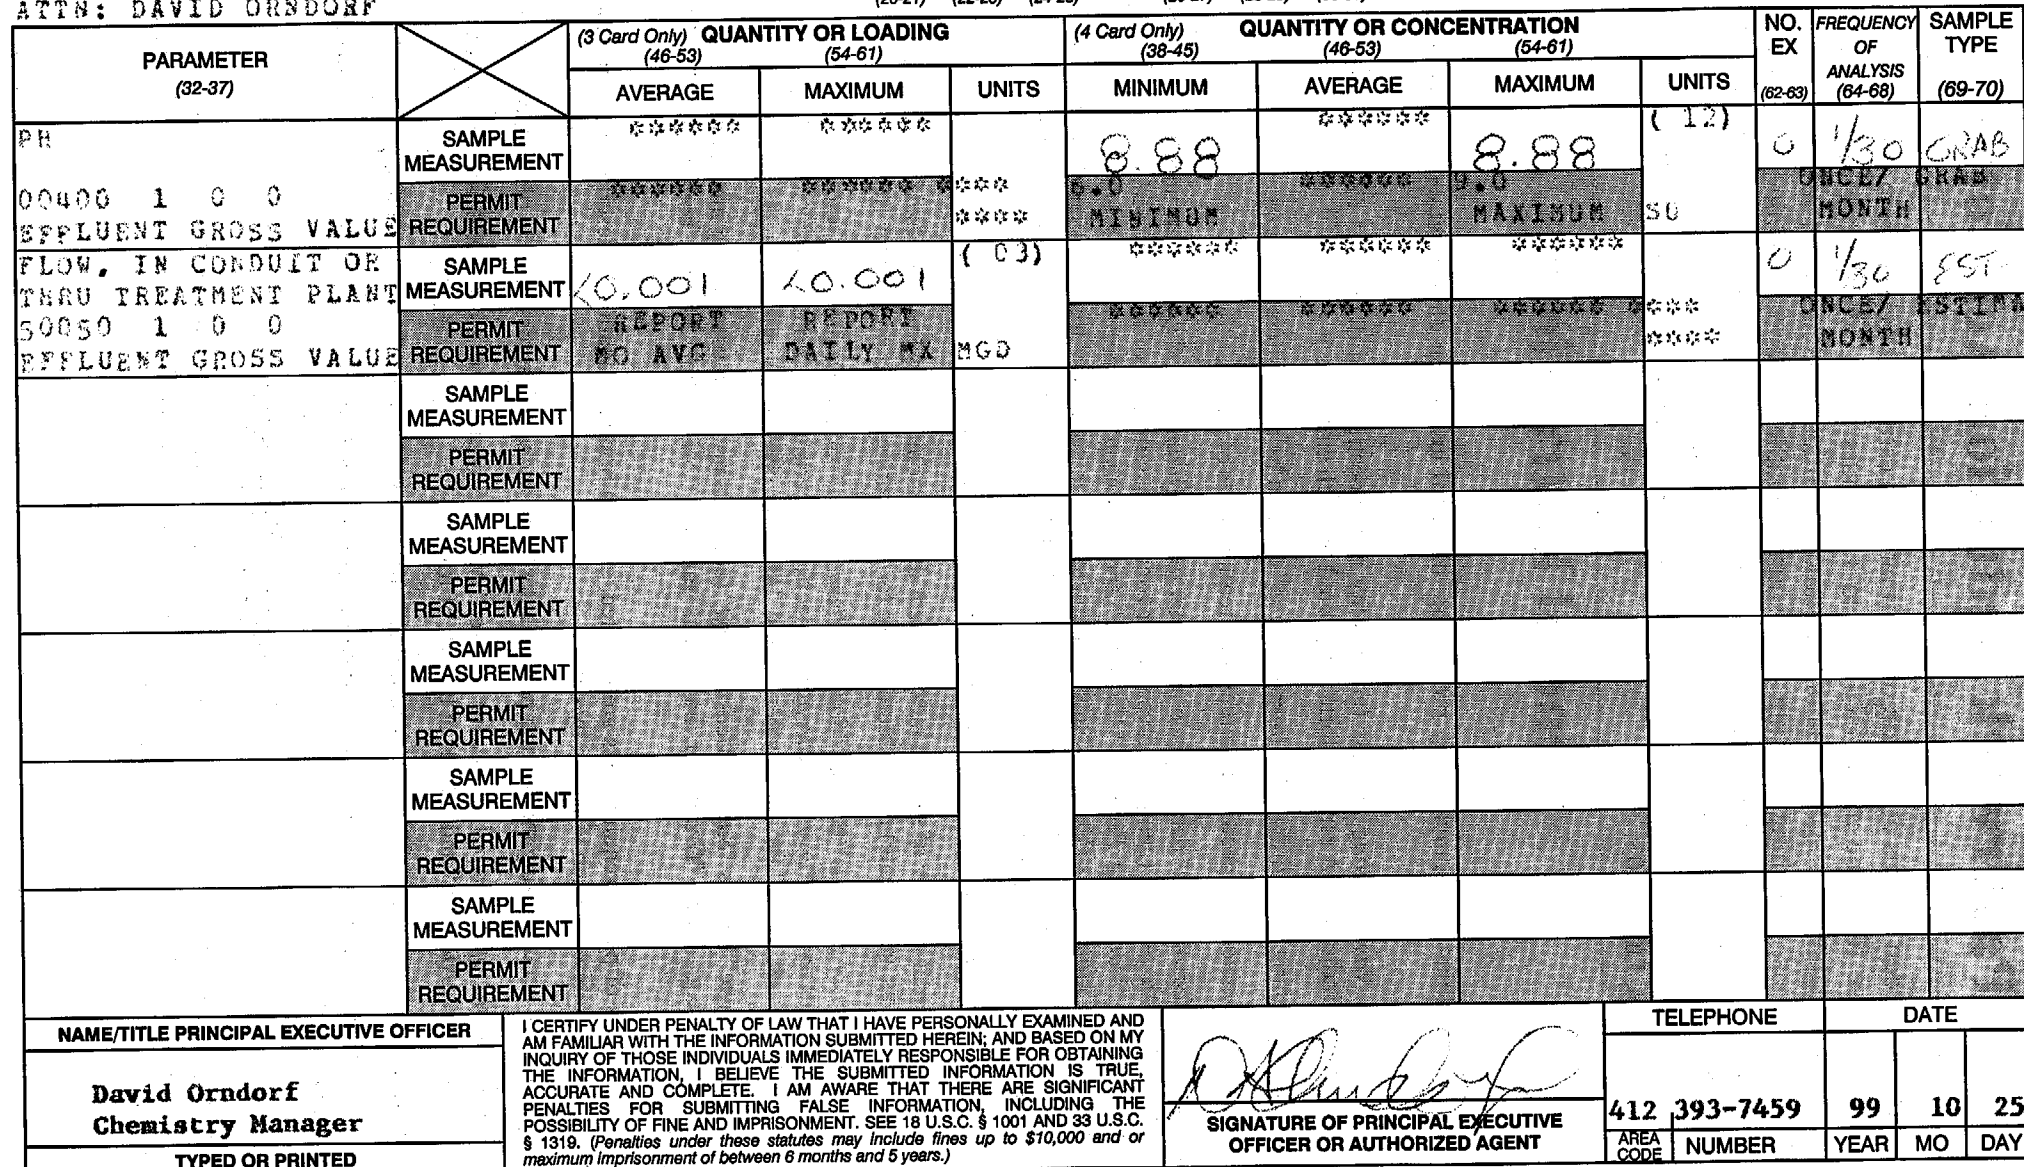 ATTN: DAVID ORNDORF
PARAMETER
(32-37)
(3 Card Only) QUANTITY OR LOADING
(46-53) (54-61)
AVERAGE MAXIMUM UNITS
(4 Card Only) QUANTITY OR CONCENTRATION
(38-45) (46-53) (54-61)
MINIMUM AVERAGE MAXIMUM UNITS
NO.
EX
(62-63)
FREQUENCY
OF
ANALYSIS
(64-68)
SAMPLE
TYPE
(69-70)
PH
00400 1 0 0
EFFLUENT GROSS VALUE
SAMPLE
MEASUREMENT
****** ****** 8.88 ****** 8.88 ( 12) 0 1/30 GRAB
PERMIT
REQUIREMENT
****** ****** **** 6.0 ****** 9.0 ONCE/ GRAB
**** MINIMUM MAXIMUM SU MONTH
FLOW, IN CONDUIT OR
THRU TREATMENT PLANT
50050 1 0 0
EFFLUENT GROSS VALUE
SAMPLE
MEASUREMENT
<0.001 <0.001 ( 03) ****** ****** ****** 0 1/30 EST.
PERMIT
REQUIREMENT
REPORT REPORT ****** ****** ****** **** ONCE/ ESTIMA
MO AVG DAILY MX MGD **** MONTH
SAMPLE
MEASUREMENT
PERMIT
REQUIREMENT
SAMPLE
MEASUREMENT
PERMIT
REQUIREMENT
SAMPLE
MEASUREMENT
PERMIT
REQUIREMENT
SAMPLE
MEASUREMENT
PERMIT
REQUIREMENT
SAMPLE
MEASUREMENT
PERMIT
REQUIREMENT
NAME/TITLE PRINCIPAL EXECUTIVE OFFICER
David Orndorf
Chemistry Manager
TYPED OR PRINTED
I CERTIFY UNDER PENALTY OF LAW THAT I HAVE PERSONALLY EXAMINED AND
AM FAMILIAR WITH THE INFORMATION SUBMITTED HEREIN; AND BASED ON MY
INQUIRY OF THOSE INDIVIDUALS IMMEDIATELY RESPONSIBLE FOR OBTAINING
THE INFORMATION, I BELIEVE THE SUBMITTED INFORMATION IS TRUE,
ACCURATE AND COMPLETE. I AM AWARE THAT THERE ARE SIGNIFICANT
PENALTIES FOR SUBMITTING FALSE INFORMATION, INCLUDING THE
POSSIBILITY OF FINE AND IMPRISONMENT. SEE 18 U.S.C. § 1001 AND 33 U.S.C.
§ 1319. (Penalties under these statutes may include fines up to $10,000 and or
maximum imprisonment of between 6 months and 5 years.)
SIGNATURE OF PRINCIPAL EXECUTIVE
OFFICER OR AUTHORIZED AGENT
TELEPHONE
412 393-7459
AREA
CODE
NUMBER
DATE
99 10 25
YEAR MO DAY